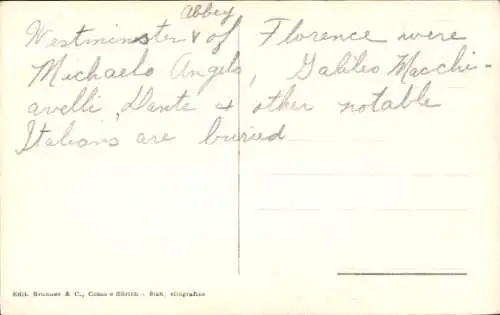 Abbey
Westminster & of Florence were
Michaelo Angelo, Galileo Macchi-
avelli, Dante & other notable
Italians are buried
Edit. Brunner & C., Como e Zürich - Stab. eliografico